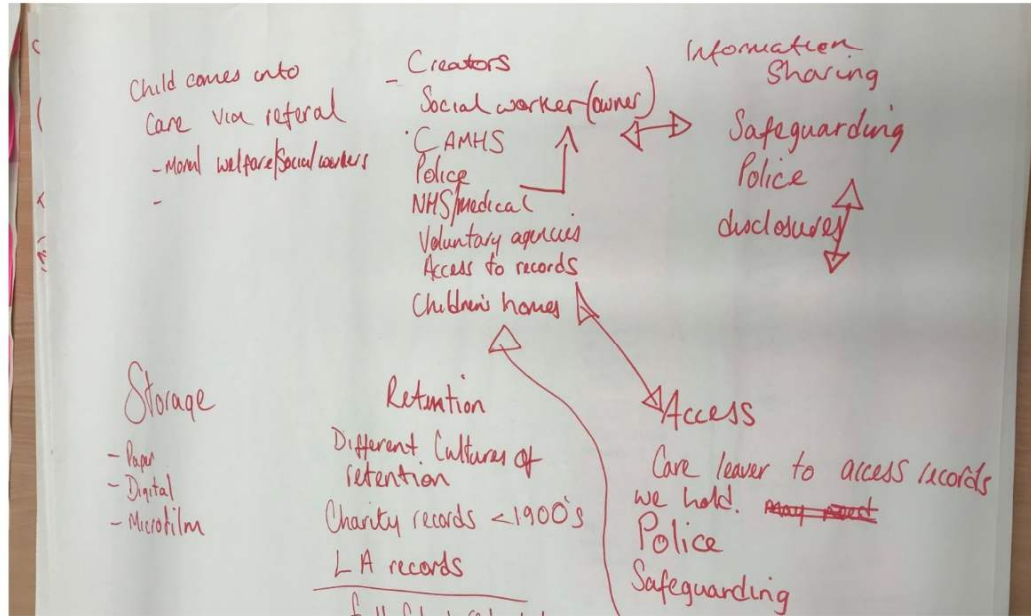 Child comes into
Care via referal
- Moral welfare/Social workers
-
- Creators
Social worker (owner)
CAMHS
Police
NHS/medical
Voluntary agencies
Access to records
Children's homes
Information
Sharing
Safeguarding
Police
disclosures
Storage
- Paper
- Digital
- Microfilm
Retention
Different Cultures of
retention
Charity records <1900's
LA records
Access
Care leaver to access records
we hold.
Police
Safeguarding